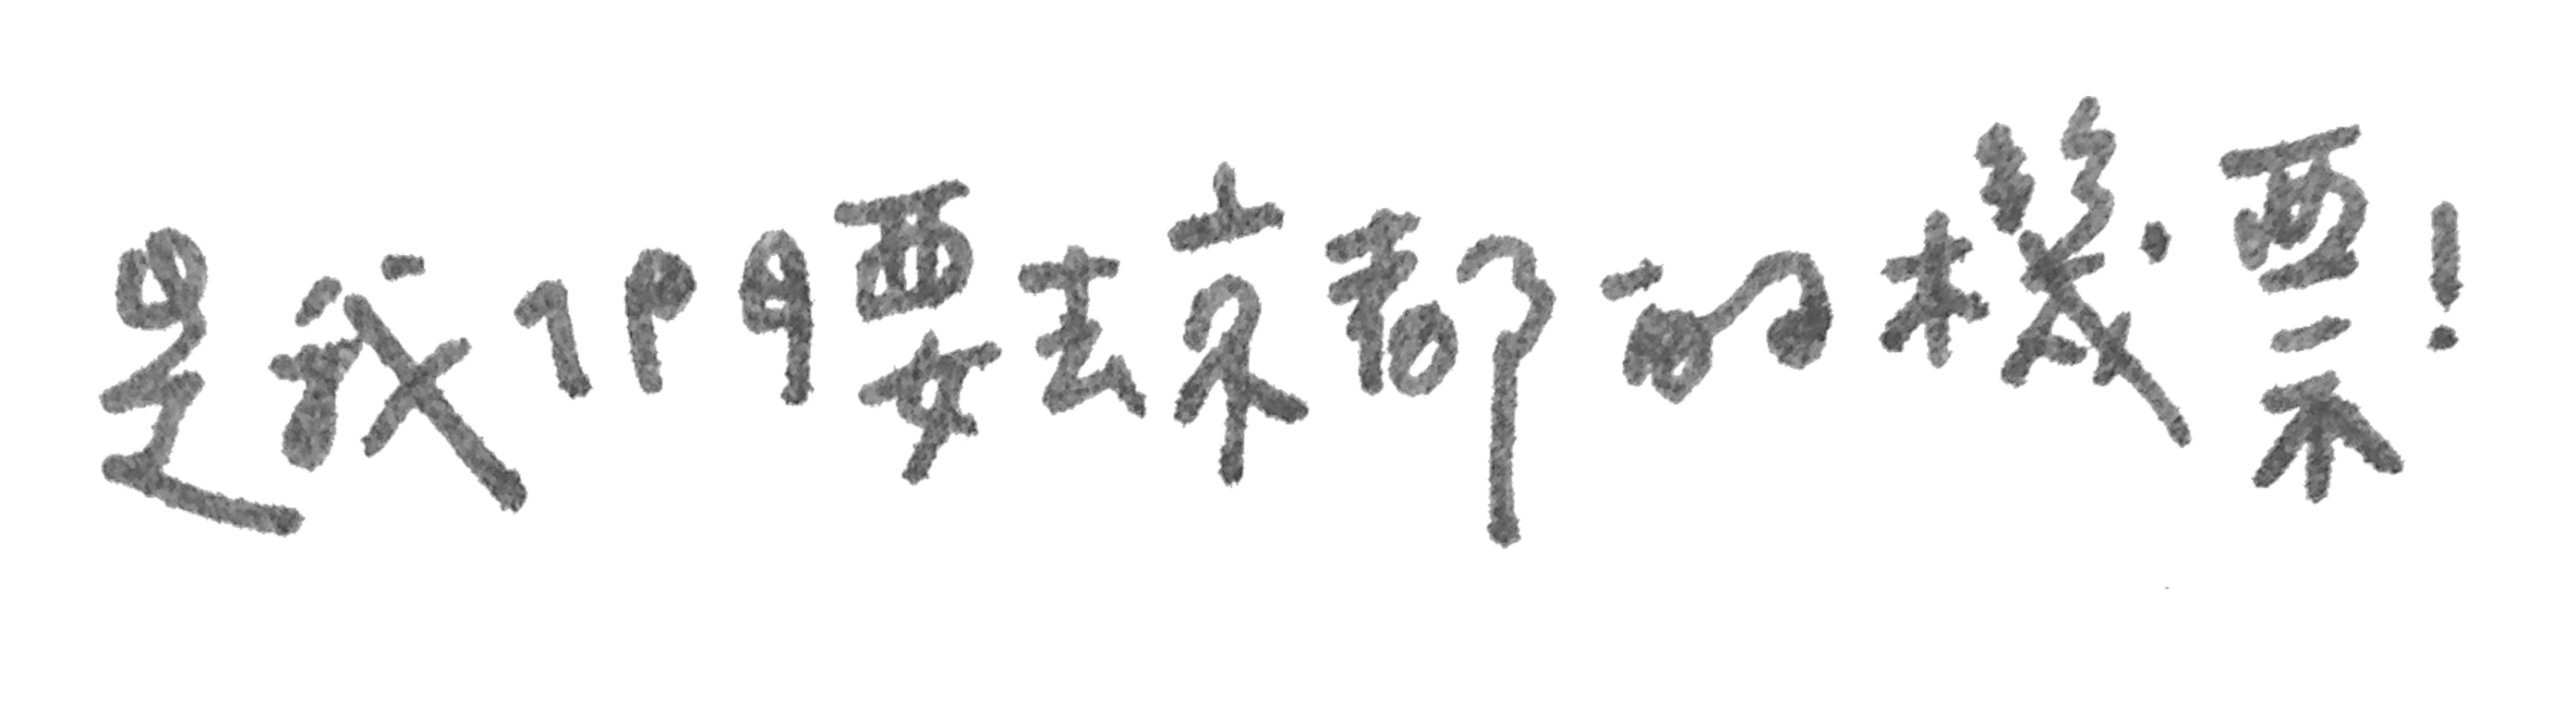 是我們要去京都的機票!